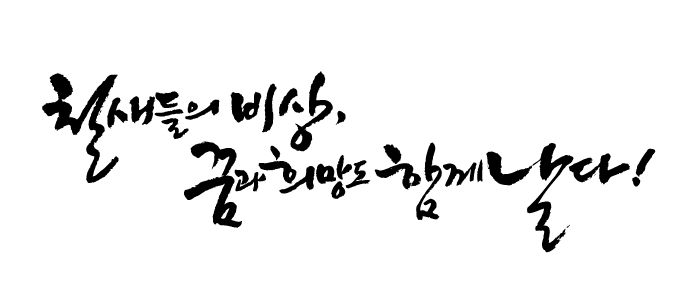 철새들의 비상,
꿈과 희망도 함께 날다!